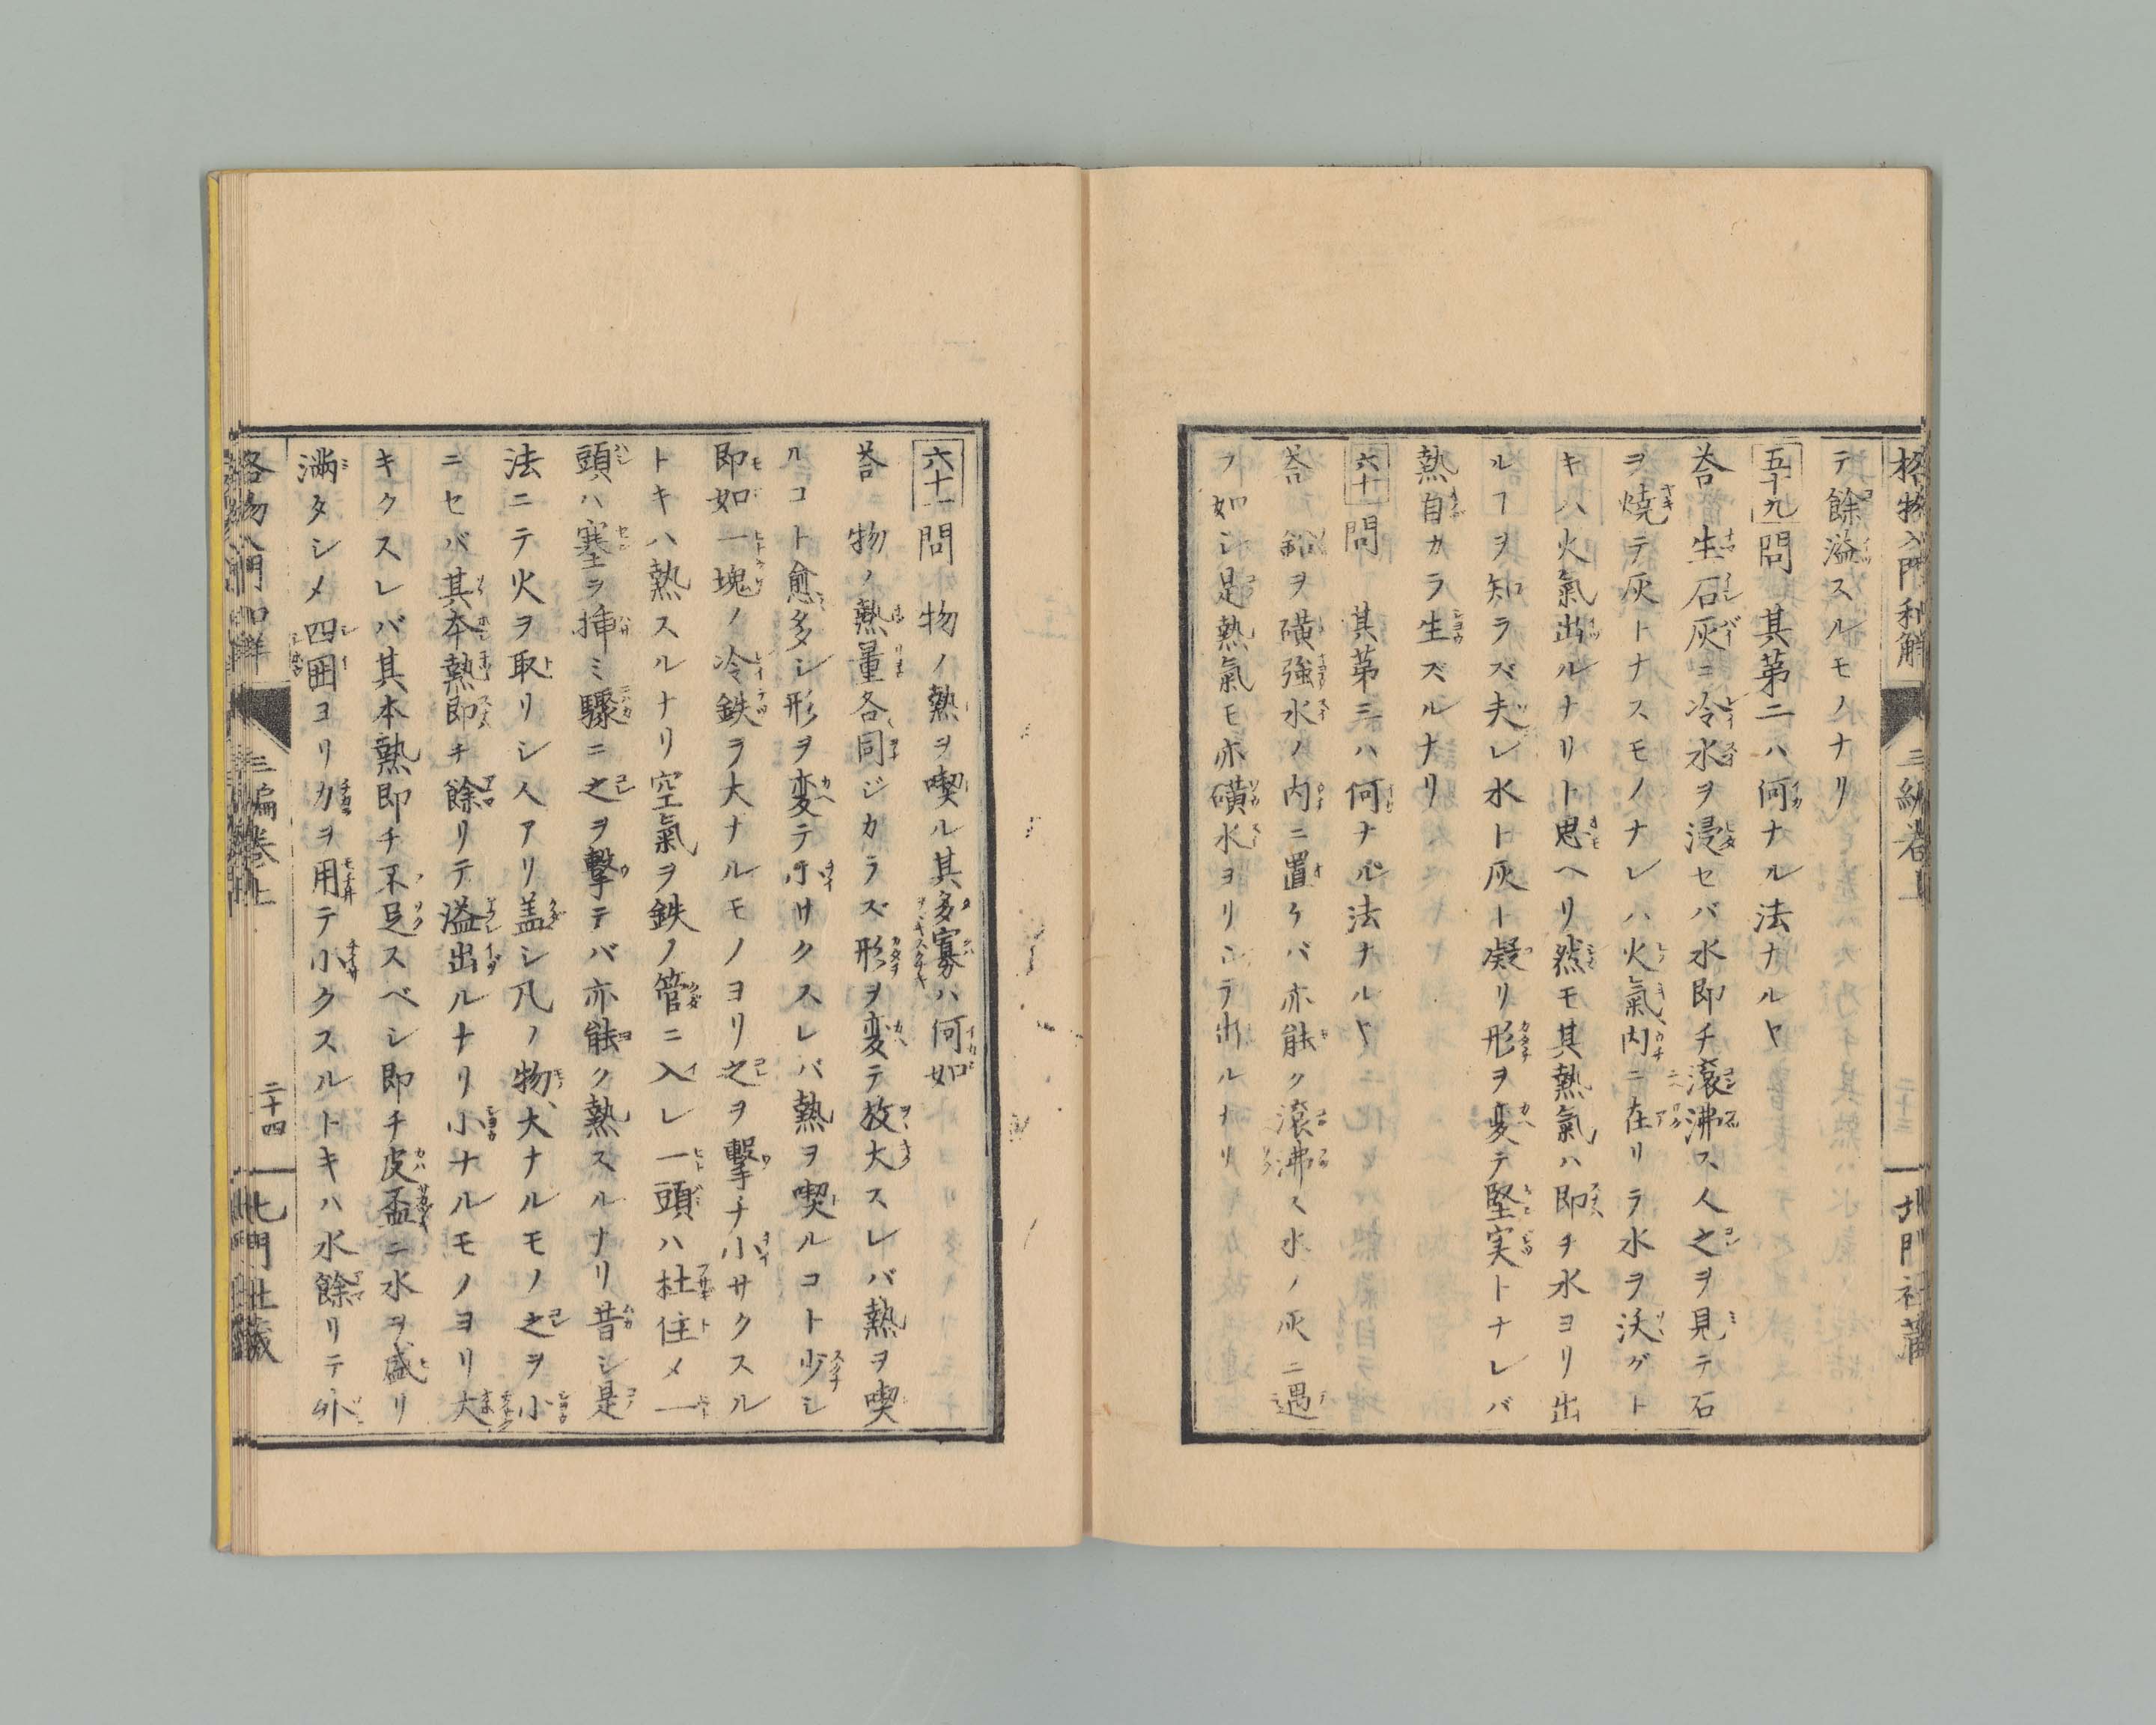 格物入門和解 三編卷上 二十三 北門社藏
テ餘溢スルモノナリ
五十九 問 其第二ハ何ナル法ナルヤ
答 生石灰ニ冷水ヲ浸セバ水即チ滾沸ス人之ヲ見テ石
ヲ燒テ灰トナスモノナレハ火氣内ニ在リテ水ヲ沃グト
キハ火氣出ルナリト思ヘリ然モ其熱氣ハ即チ水ヨリ出
ルヿヲ知ラズ夫レ水ト灰ト凝リ形ヲ変テ堅実トナレバ
熱自カラ生ズルナリ
六十 問 其第三ハ何ナル法ナルヤ
答 鉛ヲ磺強水ノ内ニ置ケバ亦能ク滾沸ス水ノ灰ニ遇
フ如シ是熱氣モ亦磺水ヨリシテ出ルナリ
六十一 問 物ノ熱ヲ喫ル其多寡ハ何如
答 物ノ熱量各同ジカラズ形ヲ変テ放大スレバ熱ヲ喫
ルコト愈多シ形ヲ変テ小サクスレバ熱ヲ喫ルコト少シ
即如一塊ノ冷鉄ラ大ナルモノヨリ之ヲ擊チ小サクスル
トキハ熱スルナリ空氣ヲ鉄ノ管ニ入レ一頭ハ杜住メ一
頭ハ塞ヲ挿ミ驟ニ之ヲ擊テバ亦能ク熱スルナリ昔シ是
法ニテ火ヲ取リシ人アリ盖シ凡ノ物大ナルモノ之ヲ小
ニセバ其本熱即チ餘リテ溢出ルナリ小ナルモノヨリ大
キクスレバ其本熱即チ不足スベシ即チ皮盃ニ水ヲ盛リ
滿タシメ四囲ヨリカヲ用テ小クスルトキハ水餘リテ外
格物入門和解 三編卷上 二十四 北門社藏